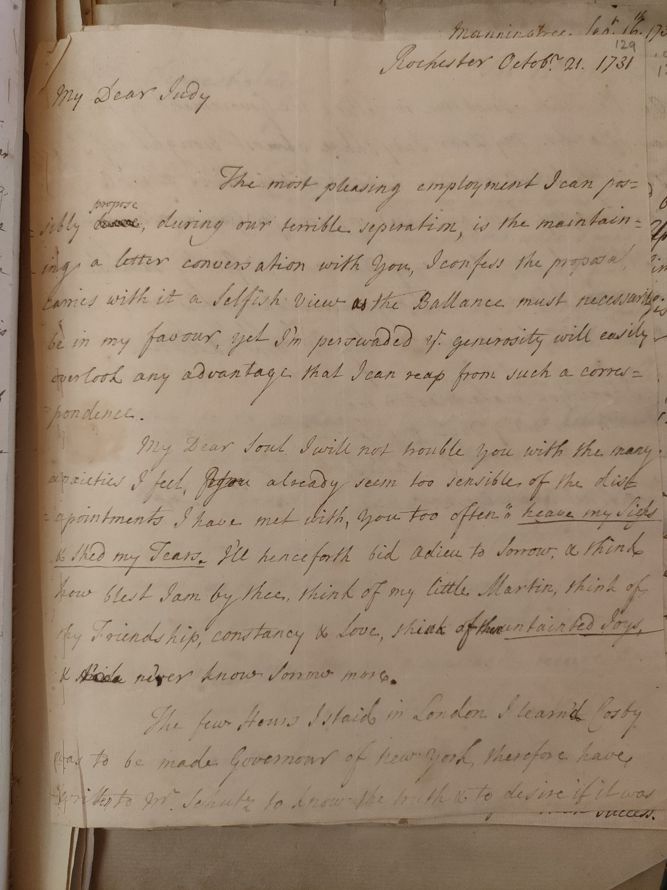 Manningtree. Jan. 16th. 17
129
Rochester Octobr. 21. 1731
My Dear Judy
The most pleasing employment I can pos=
sibly propose, during our terrible seperation, is the maintain=
ing a letter conversation with You, I confess the proposal
carries with it a Selfish view as the Ballance must necessarily
be in my favour, yet I'm perswaded yr. generosity will easily
overlook any advantage that I can reap from such a corres=
pondence.
My Dear Soul I will not trouble you with the many
anxieties I feel, already seem too sensible of the disa
=ppointments I have met with, You too often " heave my Sighs
& shed my Tears. I'll henceforth bid adieu to Sorrow, & think
how blest I am by thee, think of my little Martin, think of
thy Friendship, constancy & Love, think of thee untainted Joys,
& never know Sorrow more.
The few Hours I staid in London I learn'd Cosby
was to be made Governour of New York, therefore have
writ to Mr. Schutz to know the truth & to desire if it was
success.